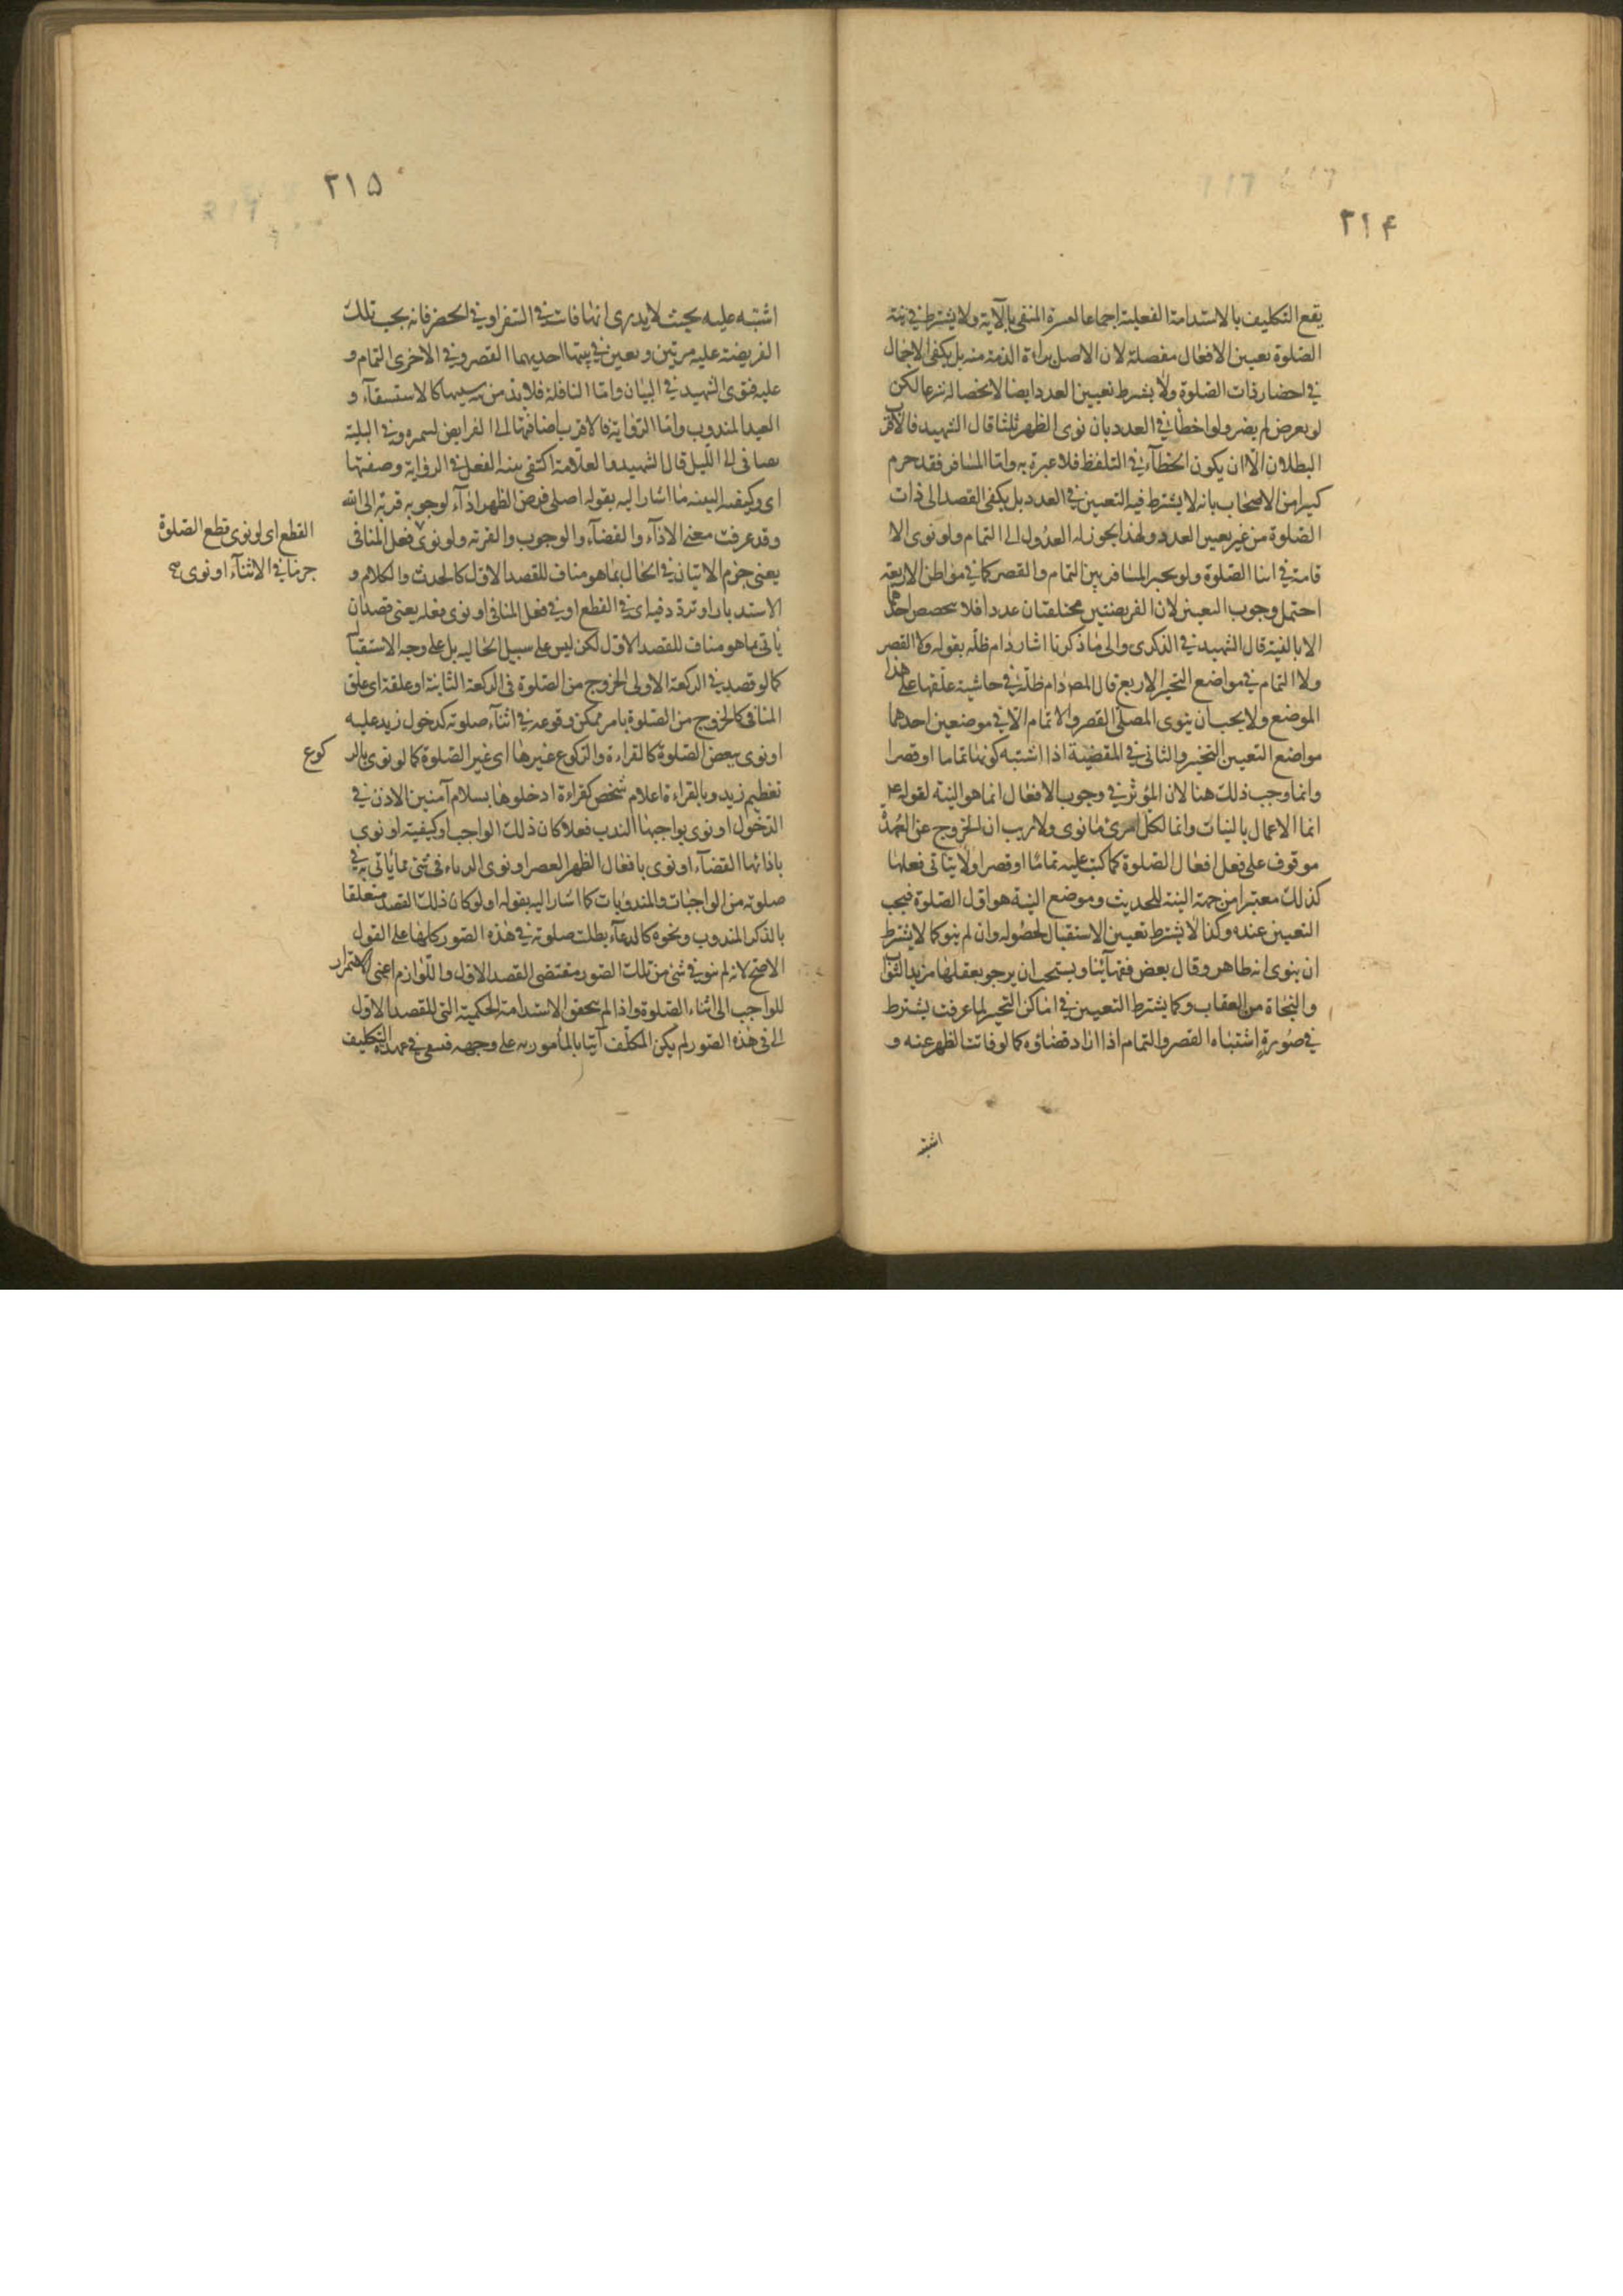 ٢١۴
يقع التكليف بالاستدامة الفعلية اجماعا لعسرة المنفى بالآية ولا يشترط في نية
الصّلوة تعيين الافعال مفصلة لان الاصل براءة الذمة منه بل يكفى الاجمال
في احضار ذات الصّلوة ولا يشترط تعيين العدد ايضا لانحصاره شرعا لكن
لو تعرض لم يضر ولو اخطأ في العدد بان نوى الظهر ثلثا قال الشهيد فالاقرب
البطلان الّا ان يكون الخطآء في التلفظ فلا عبرة به وامّا المسافر فقد حرم
كثيرا من الاصحاب بانه لا يشترط فيه التعيين في العدد بل يكفى القصد الى ذات
الصّلوة من غير تعيين العدد ولهذا يجوز له العدول الى التمام ولو نوى الا
قامة في اثنا الصّلوة ولو تخير المسافر بين التمام والقصر كما في مواطن الاربعة
احتمل وجوب التعيين لان الفريضتين مختلفتان عددا فلا يتخصص احدهما
الا بالنية قال الشهيد في الذكرى والى ما ذكرنا اشار دام ظلّه بقوله ولا القصر
ولا التمام في مواضع التخير الاربع قال المص دام ظلّه في حاشية علّقها على هذا
الموضع ولا يجب ان ينوى المصلى القصر والاتمام الّا في موضعين احدهما
مواضع التعيين التخير والثانى في المقضية اذا اشتبه كونها تماما او قصرا
وانما وجب ذلك هنا لان المؤثر في وجوب الافعال انما هو النية لقوله ع
انما الاعمال بالنيات وانما لكل امرئ ما نوى ولا ريب ان الخروج عن العهدة
موقوف على فعل افعال الصّلوة كما كتب عليه تماما او قصرا ولا يتأتى فعلها
كذلك معتبرا من جهة النية للحديث وموضع النية هو اوّل الصّلوة فيجب
التعيين عنده وكذا لا يشترط تعيين الاستقبال لحصوله وان لم ينو كما لا يشترط
ان ينوى انه طاهر وقال بعض فقهآئنا ويستحب ان يرجو بفعلها مزيد الثواب
والنجاة من العقاب وكما يشترط التعيين في اماكن التخير لما عرفت يشترط
في صورة اشتباه القصر والتمام اذا اراد قضاؤه كما لو فاتتا لظهر عنه و
اشتبه
٢١۵
اشتبه عليه بحيث لا يدرى انها فات في السّفر او في الحضر فانه يجب تلك
الفريضة عليه مرتين وتعين في نيتها احديهما القصر وفي الاخرى التمام و
عليه فتوى الشهيد في البيان وامّا النافلة فلا بدّ من سببها كالاستسقآء و
العيد المندوب وامّا الرّواية فالاقرب اضافتها الى الفرايض وفي الليلة
الى اللّيل قال الشهيد والعلّامة اكتفى بنية الفعل في الرواية وصفتها
اى وكيفية النية ما اشار اليه بقوله اصلى فرض الظهر اداء لوجوبه قربة الى الله
وقد عرفت معنى الاداء والقضآء والوجوب والقربة ولو نوى فعل المنافى
القطع اى لو نوى قطع الصّلوة
جزما في الاثنآء او نوى صح
يعنى جزم الاتيان في الحال بما هو مناف للقصد الاوّل كالحدث والكلام و
الاستدبار او تردّد فيه اى في القطع او في فعل المنافى او نوى فعله يعنى قصد ان
يأتى بما هو مناف للقصد الاوّل لكن ليس على سبيل الحالية بل على وجه الاستقبال
كما لو قصد في الركعة الاولى الخروج من الصّلوة في الركعة الثانية او علقه اى علق
المنافى كالخروج من الصّلوة بامر ممكن وقوعه في اثنآء صلوته كدخول زيد عليه
او نوى ببعض الصّلوة كالقراءة والركوع غيرها اى غير الصّلوة كما لو نوى بالر كوع
تعظيم زيد وبالقراءة اعلام شخص كقراءة ادخلوها بسلام آمنين الاذن في
الدّخول او نوى بواجبها الندب فعلا كان ذلك الواجب او كيفية او نوى
بادائها القضآء او نوى بافعال الظهر العصر او نوى الرياء في شئ مما يأتى به في
صلوته من الواجبات والمندوبات كما اشار اليه بقوله او لو كان ذلك القصد متعلقا
بالذكر المندوب ونحوه كالدعآء بطلت صلوته في هذه الصّور كلها على القول
الاصح لانه لم ينو في شئ من تلك الصّور مقتضى القصد الاوّل واللّوازم اعنى الاستمرار
للواجب الى اثناء الصّلوة واذا لم يتحقق الاستدامة الحكمية التى للقصد الاوّل
الى في هذه الصّور لم يكن المكلّف آتيا بالمأمور به على وجهه فبقى في عهدة التكليف